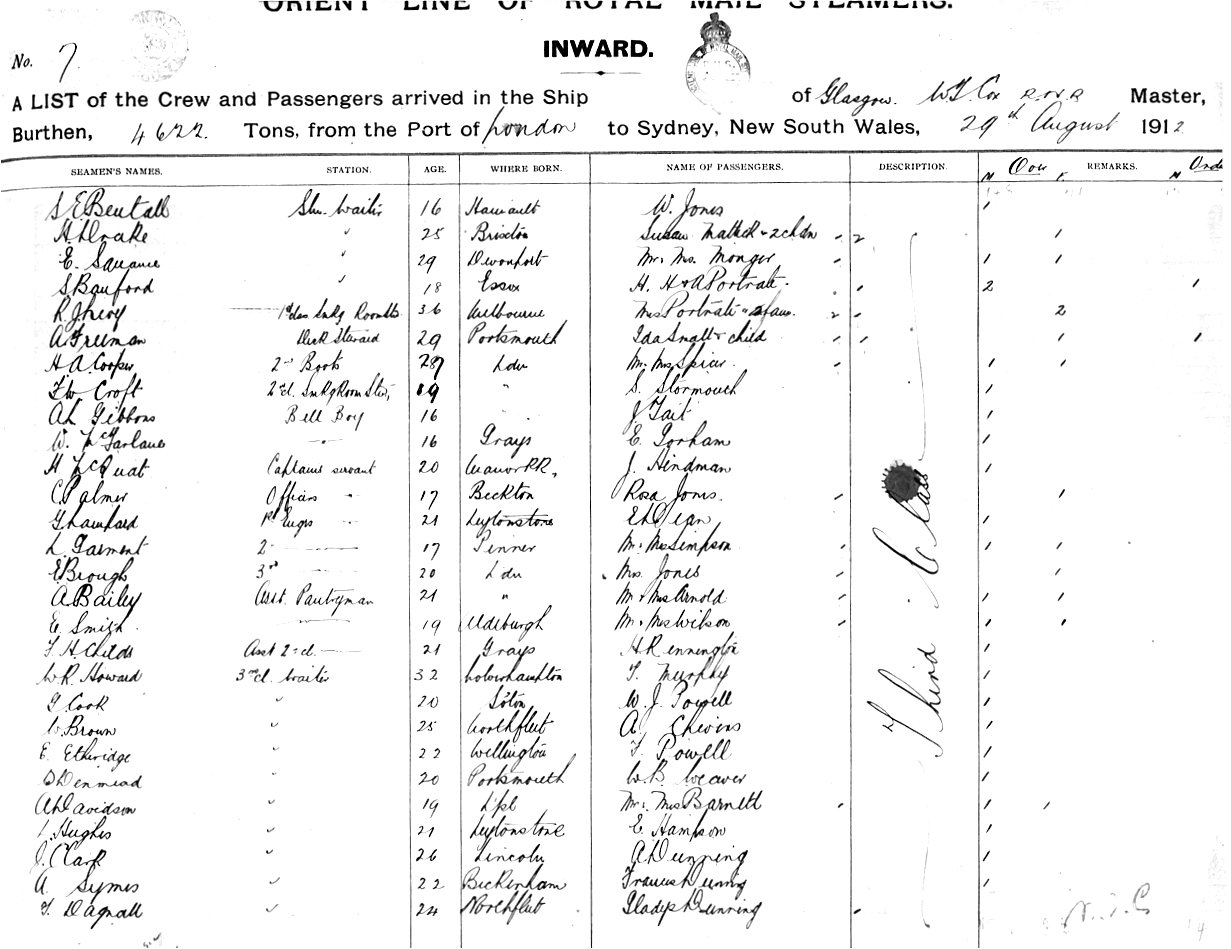 ORIENT LINE OF ROYAL MAIL STEAMERS.
INWARD.
No. 7.
A LIST of the Crew and Passengers arrived in the Ship of Glasgow. W.J. Cox R.N.R Master,
Burthen, 4622. Tons, from the Port of London to Sydney, New South Wales, 29th August 1912
SEAMEN'S NAMES. STATION. AGE. WHERE BORN. NAME OF PASSENGERS. DESCRIPTION. M Over F REMARKS. M
S E Bentall Stm. Waiter 16 Hainault W. Jones
H. Drake " 25 Brixton Susan + 2 chdn 2
E. Squance " 29 Devonport Mr. Mrs. Monger
S Bamford " 18 Essex H. H + A Portrate. 2
R. J. 1st class Smkg Room 36 Melbourne Mrs Portrate 2 2
A Freeman Deck Steward 29 Portsmouth Ida Small + child
H A Cooper 2nd Boots 28 Ldn Mr. Mrs Spicer
F W Croft 2 cl. Smkg Room Stew, 19 " S. Stormouth
A L Gibbons Bell Boy 16 " J Tait
W. McFarlane " 16 Grays E. Gorham
H McQuat Captains servant 20 Manor PR, J. Hindman
C. Palmer Officers " 17 Beckton Rosa Jones.
G Engrs " 21 Leytonstone E L Dean
L. Garment 2 " 17 Pinner Mr. Mrs Simpson
E Brough 3rd " 20 Ldn Mrs. Jones
A Bailey Asst. Pantryman 21 " Mr + Mrs Arnold
E. Smith 19 Aldeburgh Mr. Mrs Wilson
F. H. Childs Asst 2nd cl. 21 Grays H R
W R. Howard 3rd cl. Waiter 32 Wolverhampton T. Murphy
G Cook " 20 Soton W. J. Powell
W Brown " 25 Northfleet A Chevins
E. Etheridge " 22 Wellington F. Powell
Denmead " 20 Portsmouth W. B. Weaver
A L Davidson " 19 Lpl Mr. Mrs Barnett
L. Hughes " 21 Leytonstone E. Hampson
J. Clark " 26 Lincoln A Dunning
A Symes " 22 Beckenham Francis Dunning
T. Dagnall " 24 Northfleet Gladys Dunning
Third Class